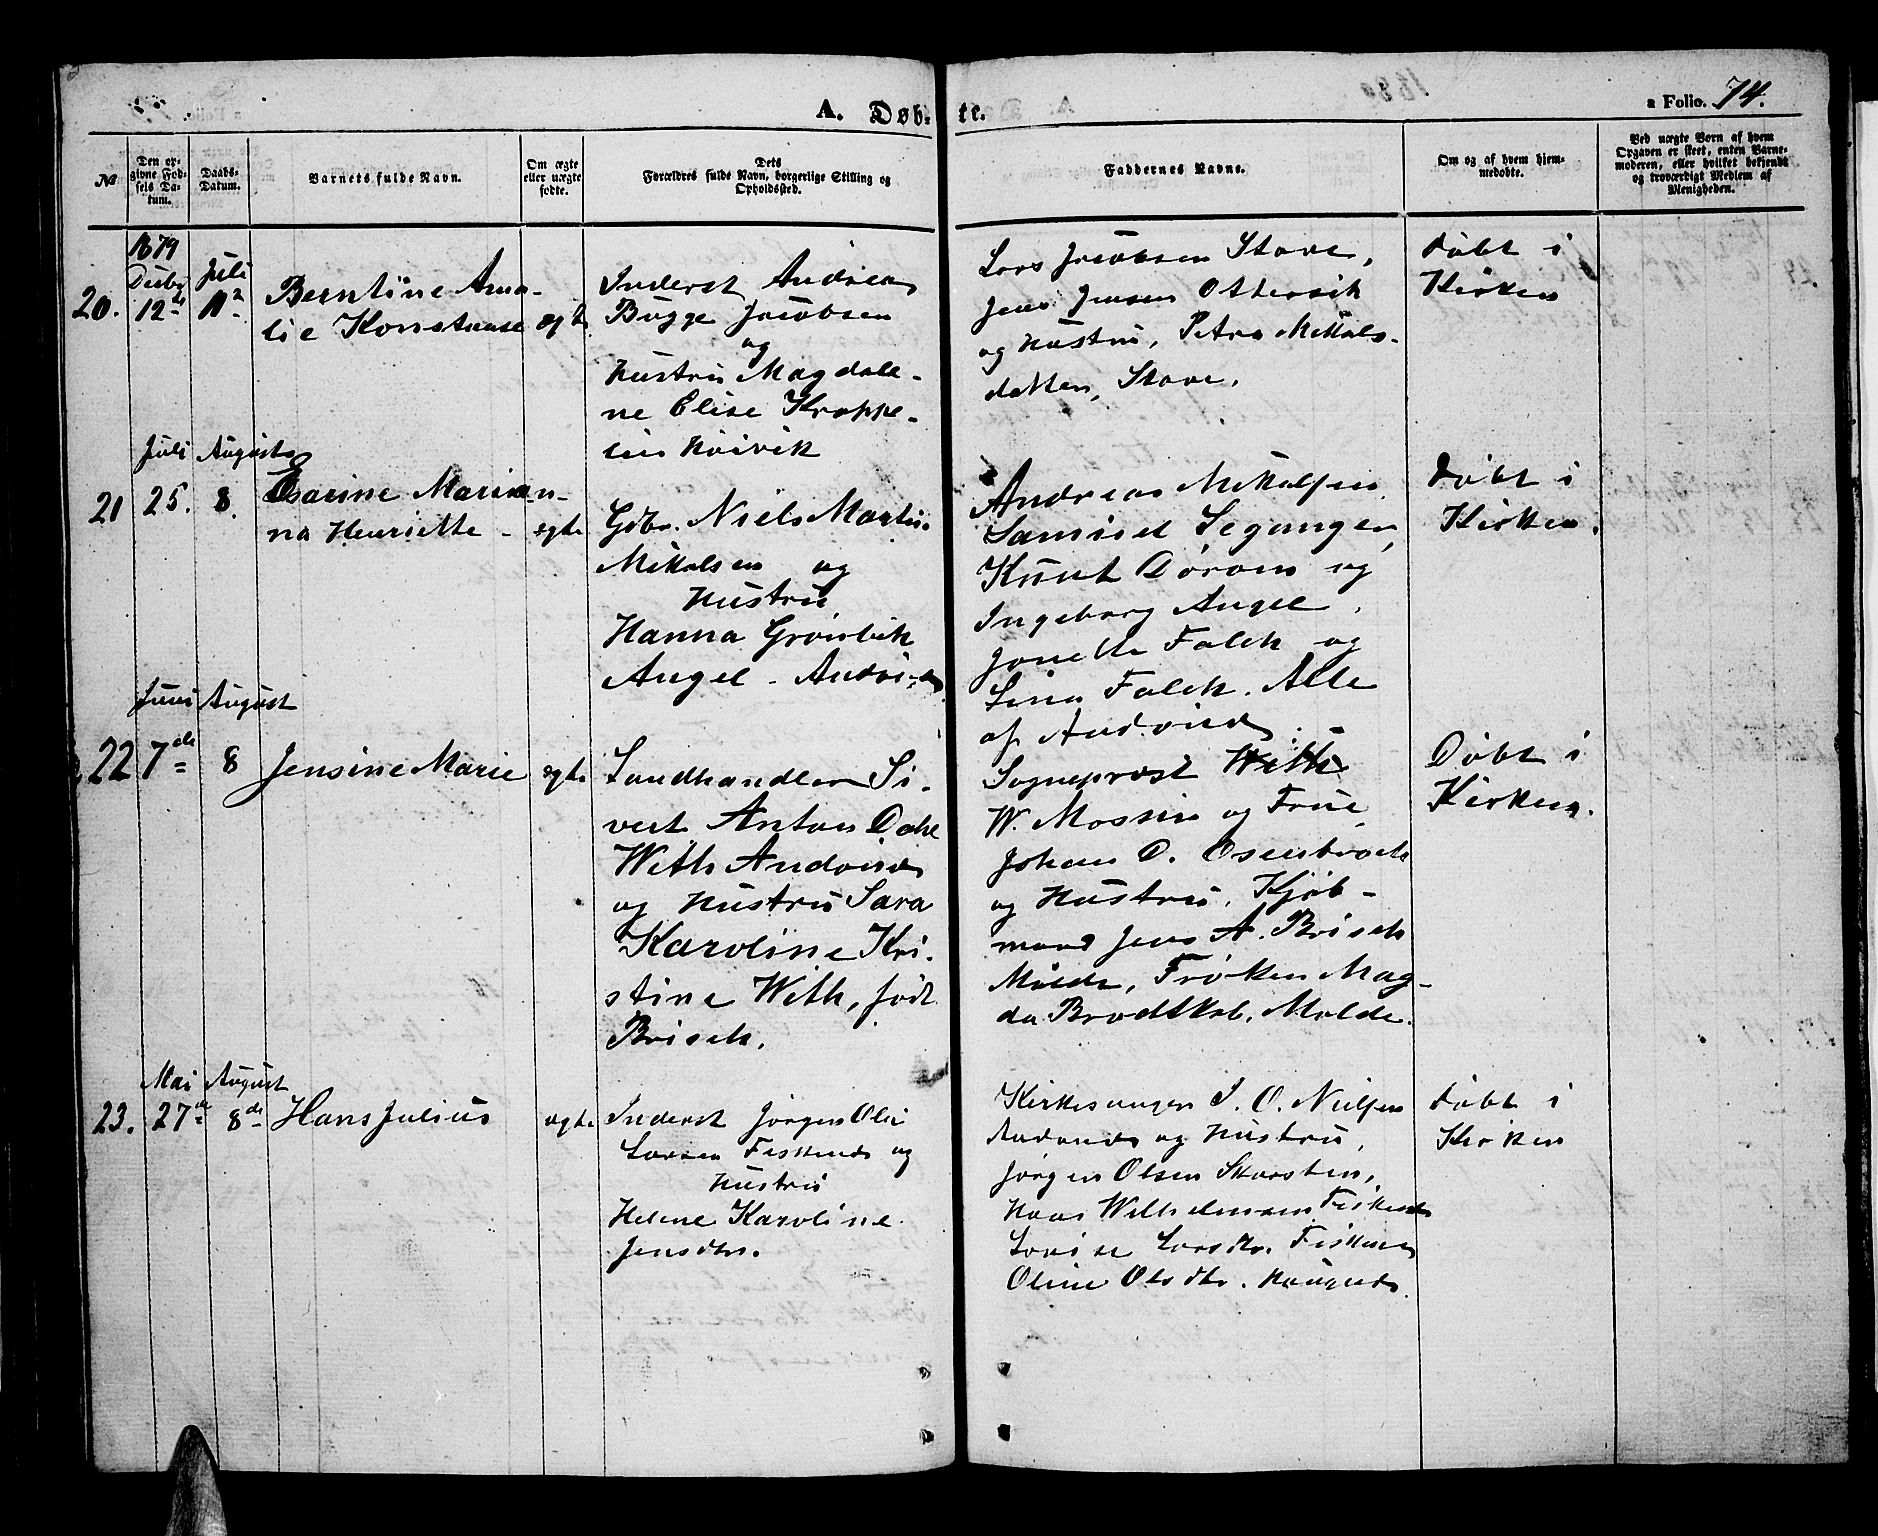 A. Døb-
te.
a Folio. 74.
№
Den op-
givne Fød-
sels Da-
tum.
Daabs-
Datum.
Barnets fulde Navn.
Om ægte
eller uægte
fødte.
Dets
Forældres fulde Navn, borgerlige Stilling og
Opholdssted.
Faddernes Navne.
Om og af hvem hjem-
medøbte.
Ved uægte Børn af hvem
Opgaven er skeet, enten Barne-
moderen, eller hvilket bekjendt
og troværdigt Medlem af
Menigheden.
20.
1879
12te
Juli
11te
Berntine Ama-
lie Konstanse
egte
Inderst Andreas
Bugge Jacobsen
og
Hustru Magdale-
ne Elise Kroppe-
lin Höivik
Lars Jacobsen Stave,
Jens Jensen Ottersik
og Hustru, Petra Mikals-
datter, Stave.
Døbt i
Kirken
21
Juli
25.
August
8.
Marian-
na Henriette
egte
Gdbr. Niels Martin
Mikalsen og
Hustru
Hanna Grönbek
Angel - Andönes
Andreas Mikalsen
Samuel Segangen,
Knut og
Ingeborg Angel,
Jonette Falch og
Lina Falch. Alle
af Andönes
Døbt i
Kirken.
22
Juni
7de
August
8
Jensine Marie
egte
Landhandler Si-
vert Anton Dahl
With Andönes
og Hustru Sara
Karoline Kri-
stine With, född
Brisch.
Sogneprest With
W. Mossin og Frue,
Johan D. Osenbroch
og Hustru, Kjöb-
mand Jens A. Brisch
Molde, Fröken Mag-
da Brodtkob, Molde.
Döbt i
Kirken.
23.
Mai
27de
August
8de
Hans Julius
egte
Inderst Jörgen Olai
Larsen Fiskenes og
Hustru
Helene Karoline
Jensdtr.
Kirkesanger I. O. Nielsen
Andenes og Hustru,
Jörgen Olsen Skarstein,
Hans Wilhelmsen Fiskenes
Lovise Larsdtr. Fiskenes
Oline Olsdtr. Haugnes.
Døbt i
Kirken